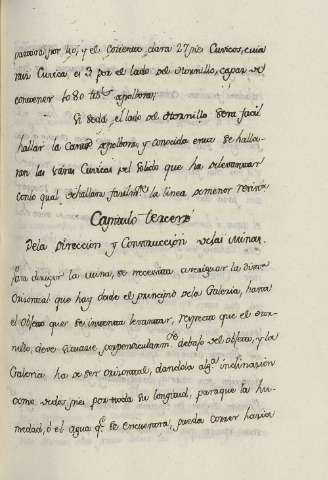 partirá por 40, y el cociente dara 27 pies Cuvicos, cuia
raiz Cuvica es 3 por el lado del Hornillo, capaz de
contener 1080 lib.s de polbora;
Si se dá el lado del Hornillo sera facil
hallar la Cant.d de polbora, y conocida esta se halla-
ran las varas Cuvicas del solido que ha de levantar
con lo qual, se hallara facilm.te la linea de menor resist.a
Capitulo tercero
De la Direccion y Construccion de las minas.
Para dirigir la mina, se necesita averiguar la dista.
Orisontal que hay desde el principio de la Galeria, hasta
el Objeto que se intenta levantar, respecto que el Hor-
nillo, deve situarse perpendicularm.te debajo del objeto, y la
Galeria ha de ser orisontal, dandola alg.a inclinacion
como de dos pies por toda su longitud, para que la hu-
medad, ó el agua q.e se encuentra, pueda correr hacia